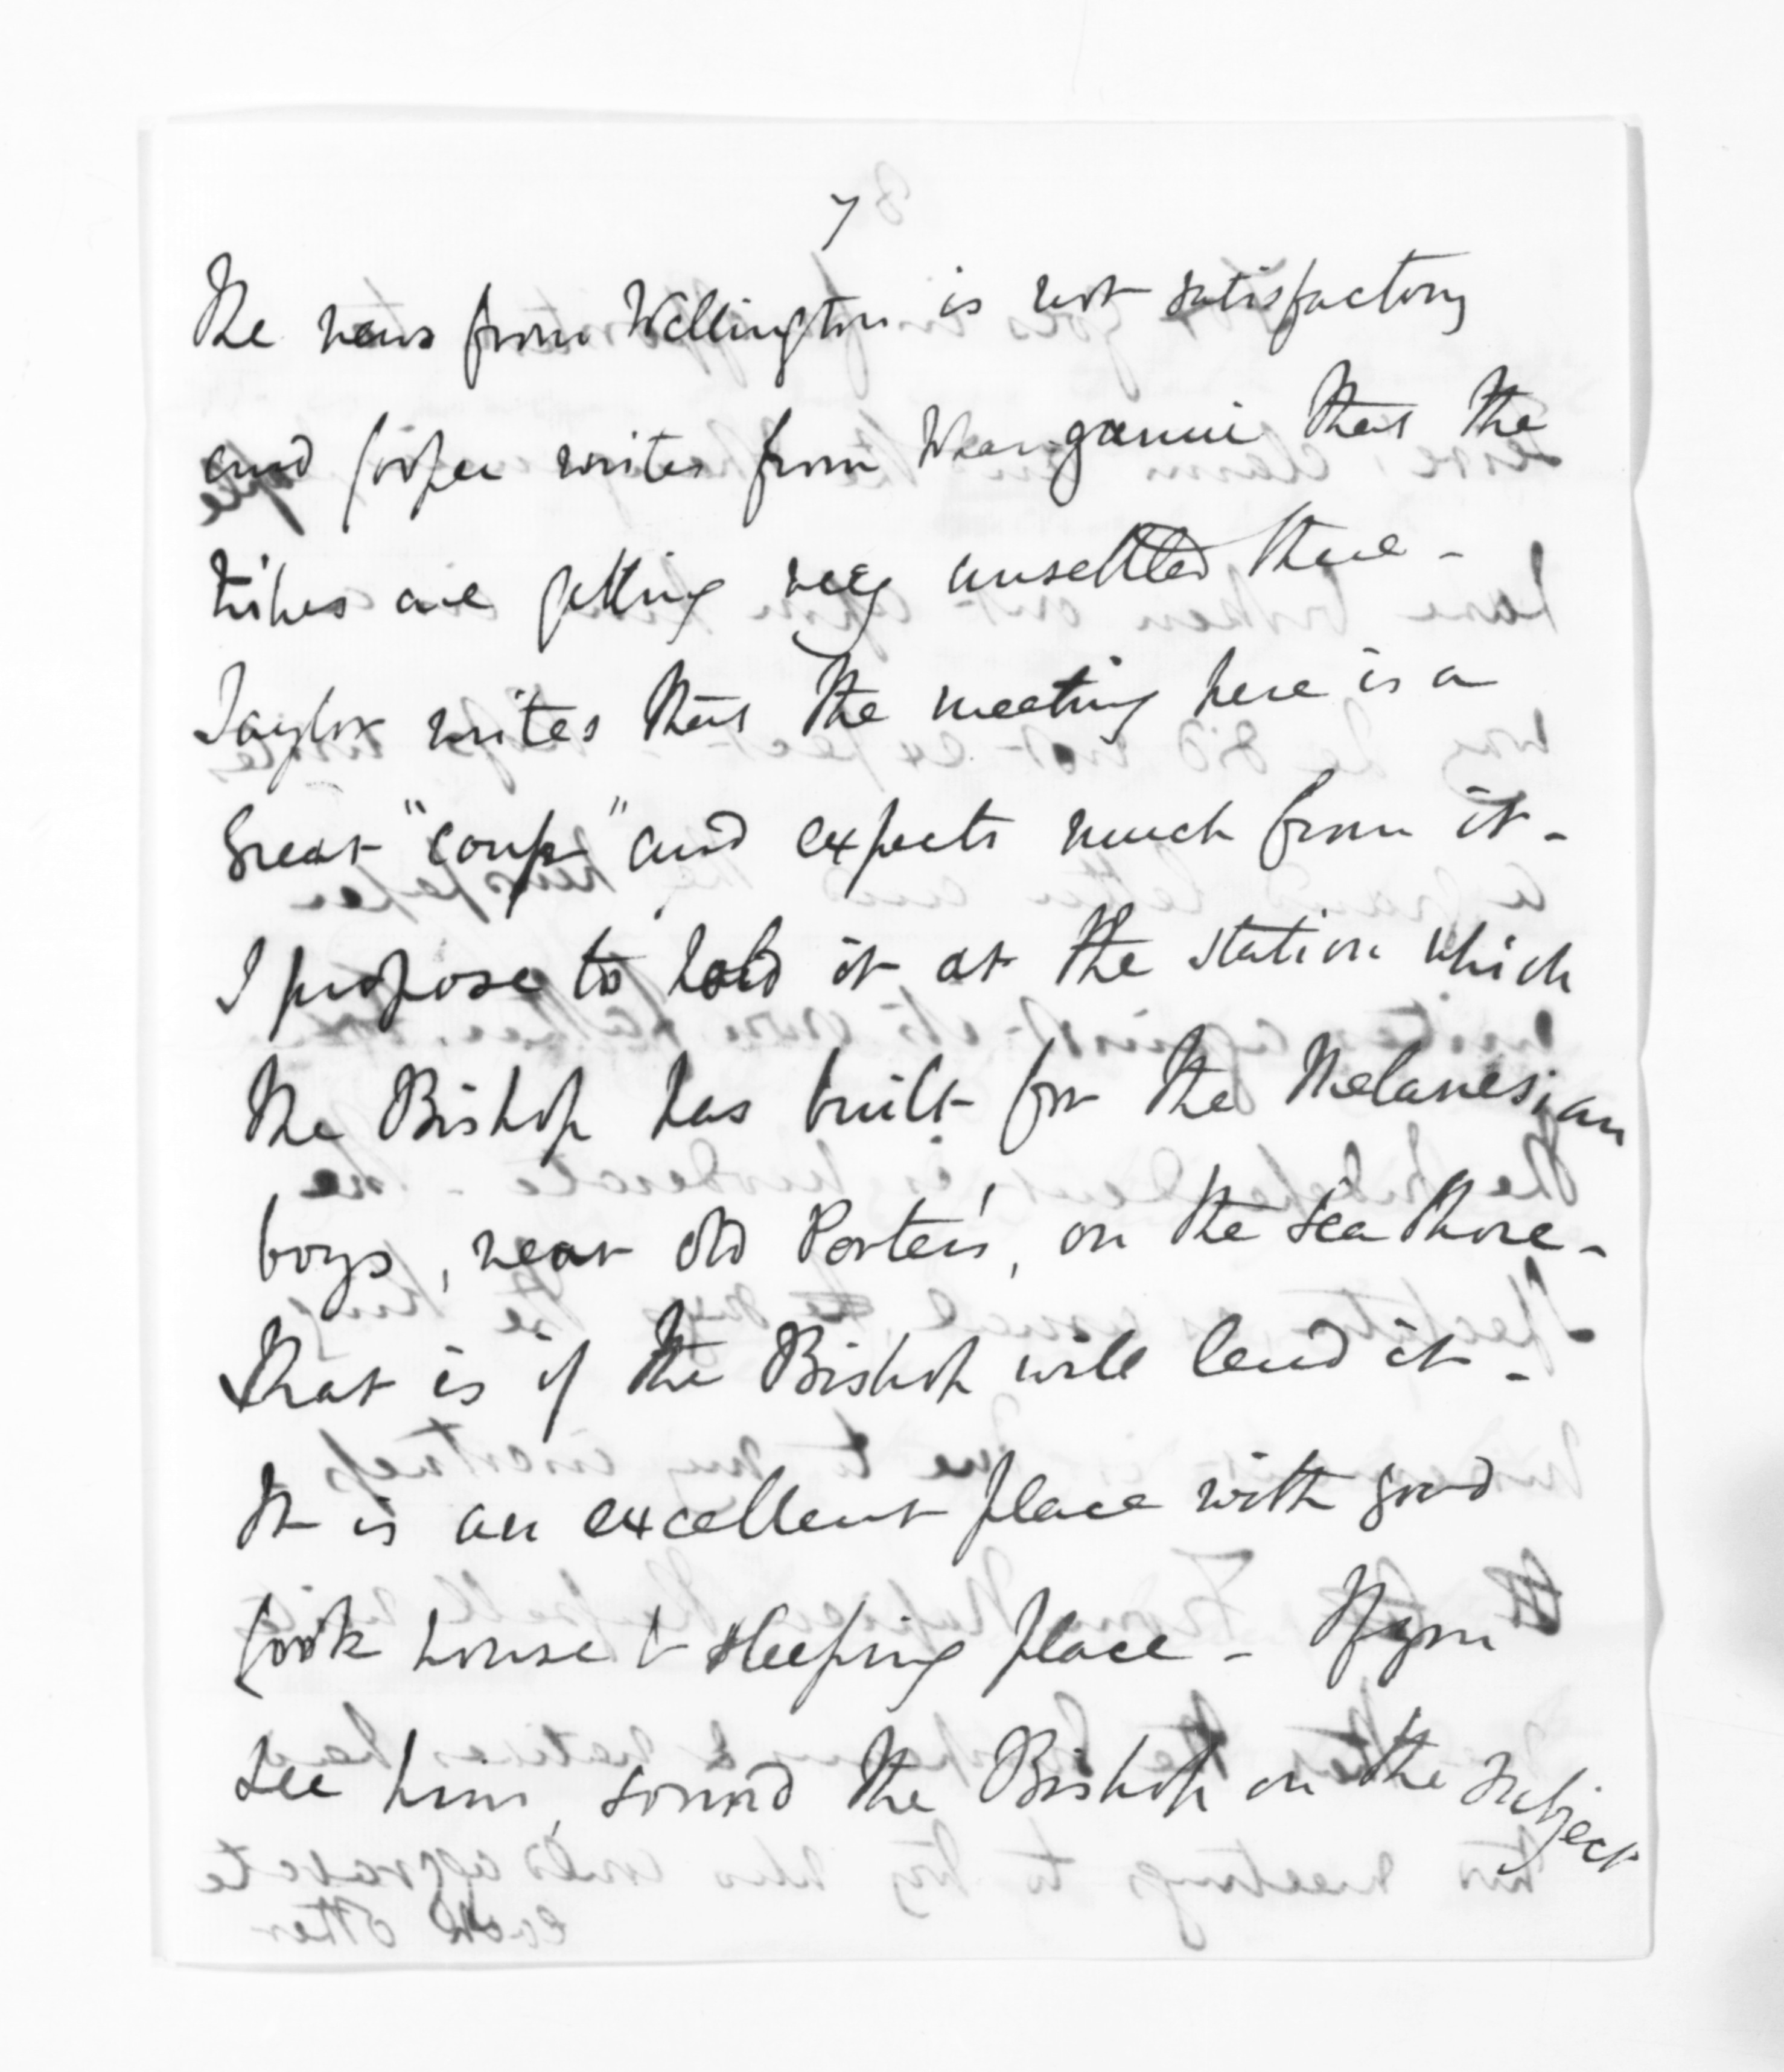 7
The news from Wellington is not satisfactory
and Cooper writes from Whanganui that the
tribes are getting very unsettled there -
Taylor writes that the meeting here is a
great "coup" and expects much from it -
I propose to hold it at the station which
the Bishop has built for the Melanesian
boys, near old Porter's, on the sea shore -
that is if the Bishop will lend it -
It is an excellent place with good
Cook house & sleeping place - If you
see him, sound the Bishop on the subject